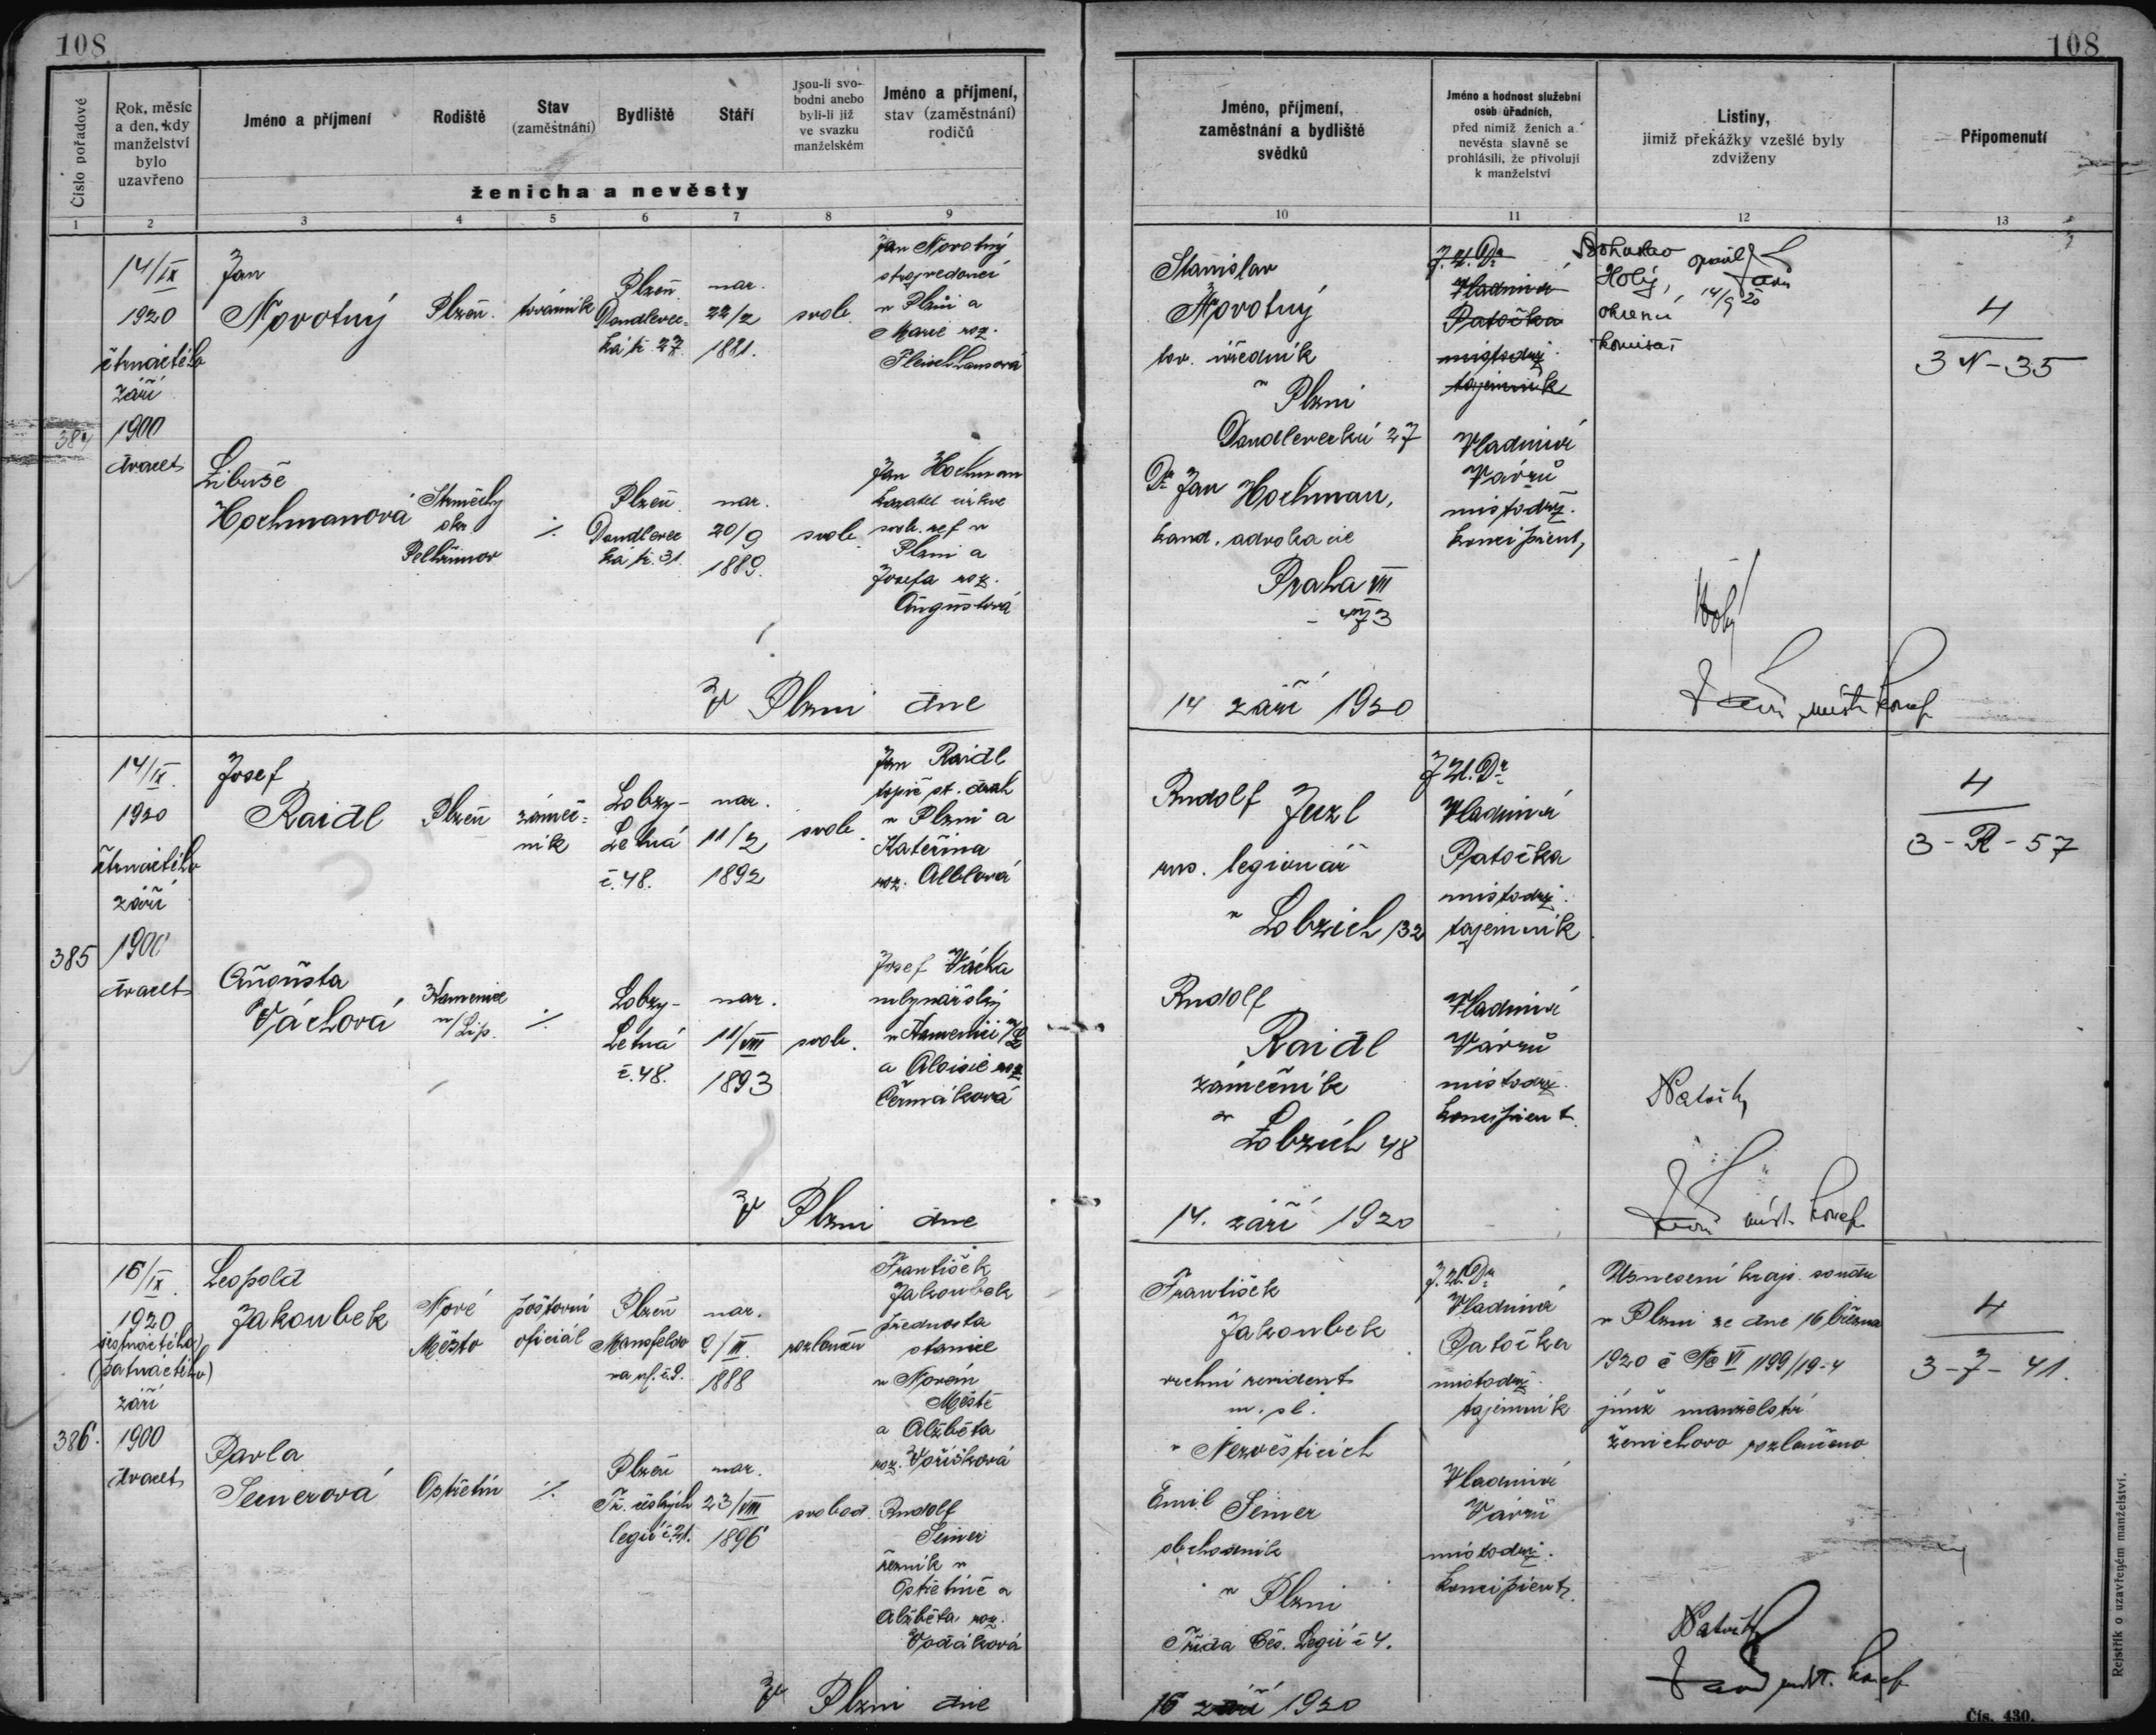 108
108
Číslo pořadové
Rok, měsíc
a den, kdy
manželství
bylo
uzavřeno
Jméno a příjmení
Rodiště
Stav
(zaměstnání)
Bydliště
Stáří
Jsou-li svo-
bodni anebo
byli-li již
ve svazku
manželském
Jméno a příjmení,
stav (zaměstnání)
rodičů
ženicha a nevěsty
1 2 3 4 5 6 7 8 9
Jméno, příjmení,
zaměstnání a bydliště
svědků
Jméno a hodnost služební
osob úřadních,
před nimiž ženich a
nevěsta slavně se
prohlásili, že přivolují
k manželství
Listiny,
jimiž překážky vzešlé byly
zdviženy
Připomenutí
10 11 12 13
384
14/IX
1920
čtrnáctého
září
1900
dvacet
Jan
Novotný
Plzeň.
továrník
Plzeň
Doudlevec=
ká tř. 27.
nar.
22/2
1881.
svob.
Jan Novotný
strojvedoucí
v Plzni a
Marie roz.
Libuše
Hochmanová
okr.
Pelhřimov
./.
Plzeň
Doudlevec
ká tř. 31.
nar.
20/9
1889.
svob.
Jan Hochman
kazatel církve
svob. ref v
Plzni a
Josefa roz.
Augustová
V Plzni dne
Stanislav
Novotný
tov. úředník
v Plzni
Doudlevecká 27
Dr Jan Hochman,
kand. advokacie
Praha VII
473
14 září 1920
J. U. Dr
Vladimír
Patočka
místodrž.
tajemník
Vladimír
Vávrů
místodrž.
koncipient,
Bohuslav
Holý,
okresní
komisař
opravil
14/9 20
Holý
míst. koncp.
4
3 N - 35
385
14/IX.
1920
čtrnáctého
září
1900
dvacet
Josef
Raidl
Plzeň
zámeč=
ník
Lobzy-
Letná
č. 48.
nar.
11/2
1892
svob.
Jan Raidl
topič st. drah
v Plzni a
Kateřina
roz. Alblová
Augusta
Váchová
Kamenice
n/Lip.
./.
Lobzy-
Letná
č. 48.
nar.
11/VIII
1893
svob.
Josef Vácha
mlynářský
v Kamenici n/L
a Aloisie roz
Čermáková
V Plzni dne
Rudolf Juzl
rus. legionář
v Lobzích 132
Rudolf
Raidl
zámečník
v
Lobzích 48
14. září 1920
J. U. Dr
Vladimír
Patočka
místodrž.
tajemník
Vladimír
Vávrů
místodrž.
koncipient.
Patočka
míst. koncp.
4
3 - R - 57
386.
16/IX.
1920
šestnáctého
(patnáctého)
září
1900
dvacet
Leopold
Jakoubek
Nové
Město
poštovní
oficiál
Plzeň
Mansfeldo
va ul. č. 9.
nar.
9/III.
1888
rozloučen
František
Jakoubek
přednosta
stanice
v Novém
Městě
a Alžběta
roz. Voříšková
Pavla
Seinerová
Ostřetín
./.
Plzeň
Tř. českých
legií č. 21.
nar.
23/VIII
1896
svobod.
Rudolf
Seiner
řezník v
Ostřetíně a
Alžběta roz.
Vodáková
V Plzni dne
František
Jakoubek
vrchní revident
v Nezvěsticích
Emil Seiner
obchodník
v Plzni
Třída Čes. Legií č 4.
16 září 1920
J. U. Dr
Vladimír
Patočka
místodrž.
tajemník
Vladimír
Vávrů
místodrž.
koncipient.
Usnesení krajs. soudu
v Plzni ze dne 16 března
1920 č Nc VI 1199/19-4
jímž manželství
ženichovo rozloučeno
Patočka
míst. koncp.
4
3 - 7 - 41.
Rejstřík o uzavřeném manželství.
Čís. 430.